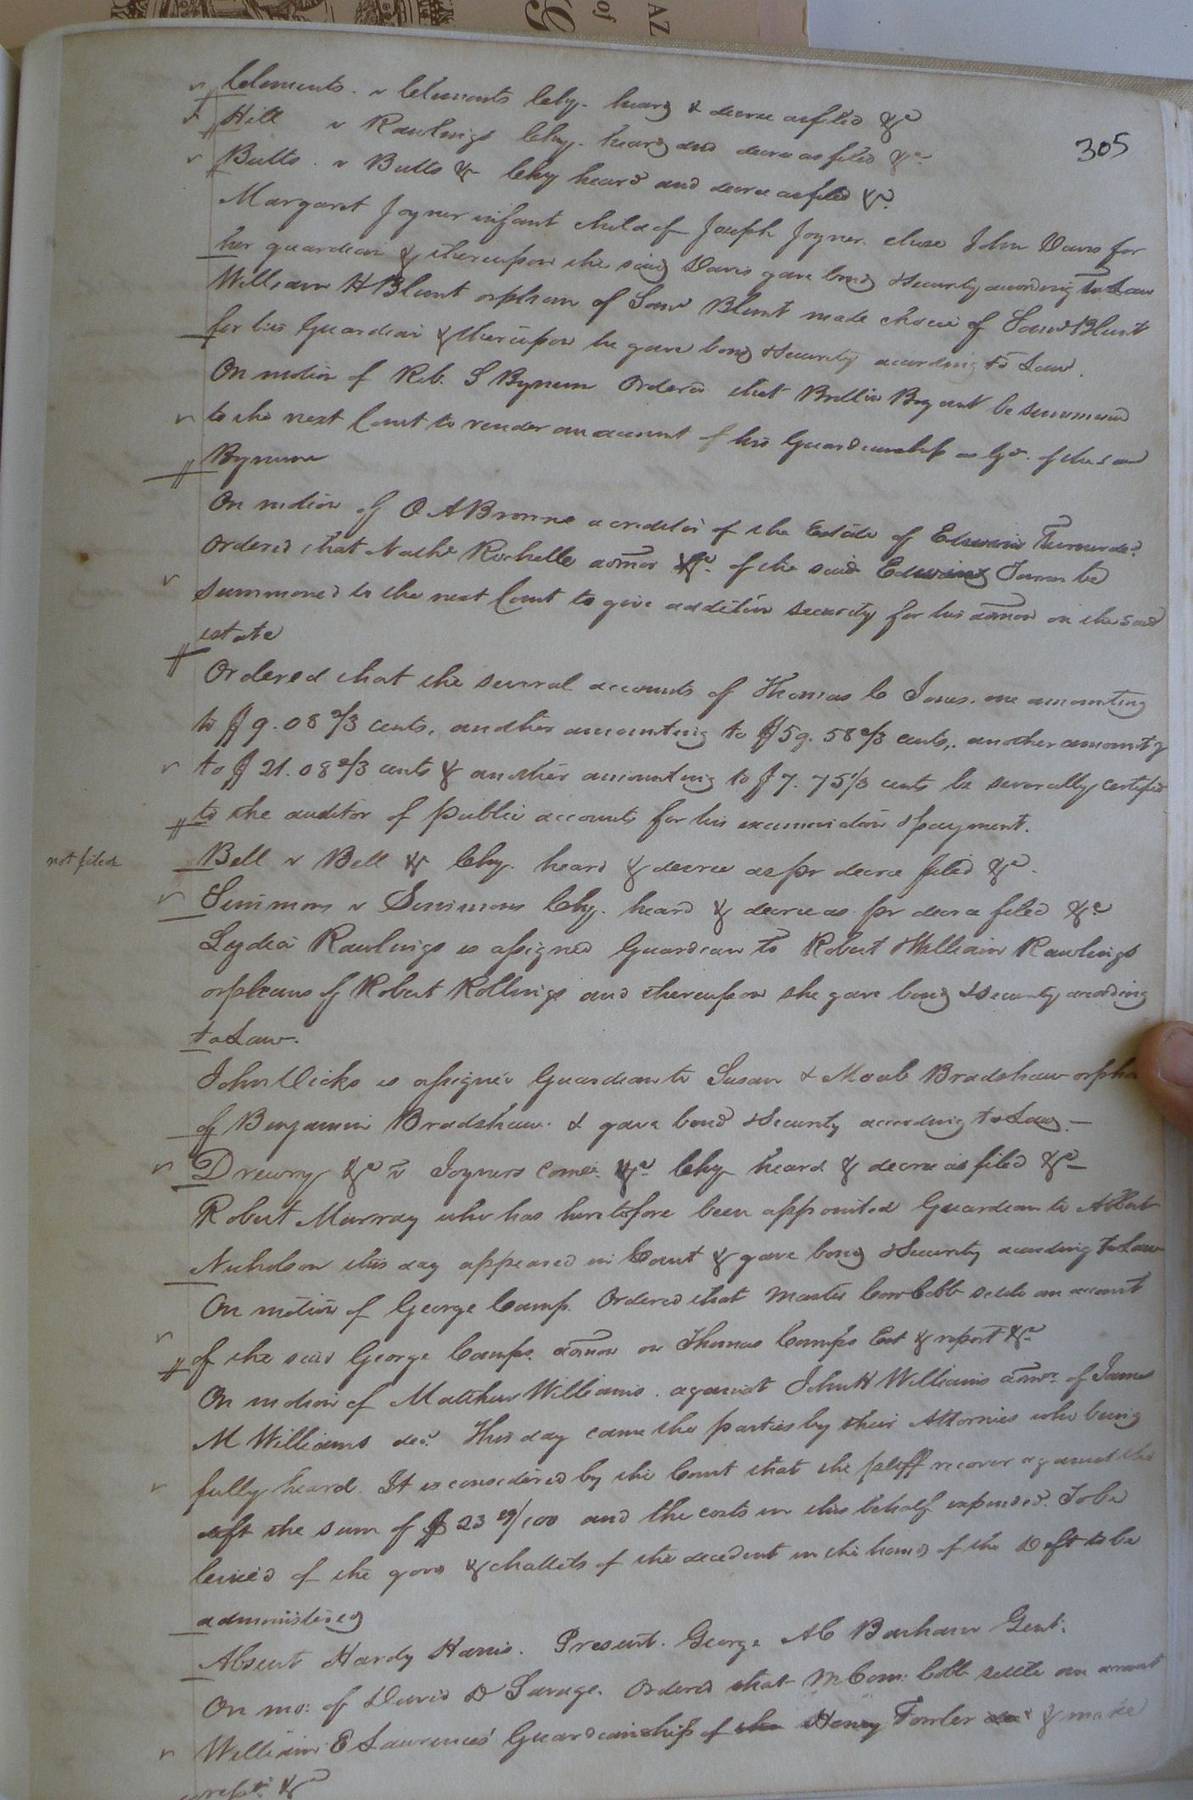 AZ
of
G
305
Clements. v Clements Chy. heard & decree as filed &c
Hill v Rawlings Chy. heard and decree as filed &c
Butts. v Butts & Chy heard and decree as filed &c
Margaret Joyner infant child of Joseph Joyner. chose John Davis for
her guardian & thereupon the said Davis gave bond & security according to Law
William H Blunt orphan of Saml Blunt made choice of Saml Blunt
for his Guardian & thereupon he gave bond & security according to Law.
On motion of Rob. S Bynum Ordered that Bryant be summoned
to the next Court to render an account of his Guardianship as Gd. of the said
Bynum
On motion of O A Browne a creditor of the Estate of Edwin Turner decd.
Ordered that Nathl Rochelle admor &c. of the said Edwin Turner be
Summoned to the next Court to give addition security for his admon on the said
estate
Ordered that the several accounts of Thomas C Jones. one amounting
to $ 9. 08 2/3 cents, another amounting to $ 59. 58 2/3 cents, another amountg
to $ 21. 08 2/3 cents & another amounting to $ 7. 75 1/3 cents be severally certified
to the auditor of public accounts for his examination & payment.
not filed
Bell v Bell & Chy. heard & decree as pr decree filed &c.
Simmons v Simmons Chy. heard & decree as pr decree filed &c
Lydia Rawlings is assigned Guardian to Robert & William Rawlings
orphans of Robert Rollings and thereupon she gave bond & security according
to Law.
John Vicks is assigned Guardian to Susan & Moab Bradshaw orphans
of Benjamin Bradshaw. & gave bond & Security according to Law. —
Drewry &c v Joyners &c Chy heard & decree as filed &c
Robert Murray who has heretofore been appointed Guardian to Albert
Nicholson this day appeared in Court & gave bond & Security according to Law
On motion of George Camp. Ordered that Master Com Cobb settle an account
of the said George Camps. admon on Thomas Camps Est & report &c
On motion of Matthew Williams. against John H Williams admr. of James
M Williams decd. This day came the parties by their Attornies who being
fully heard. It is considered by the Court that the pltff recover against the
deft the sum of $ 23 /100 and the costs in this behalf expended. To be
levied of the goods & chattels of the decedent in the hands of the Deft to be
administered
Absent Hardy Harris. Present. George AC Barham Gent.
On mo: of David D Savage. Ordered that M Com: Cobb settle an account
William E Laurences' Guardianship of the Henry Fowler & make
report &c